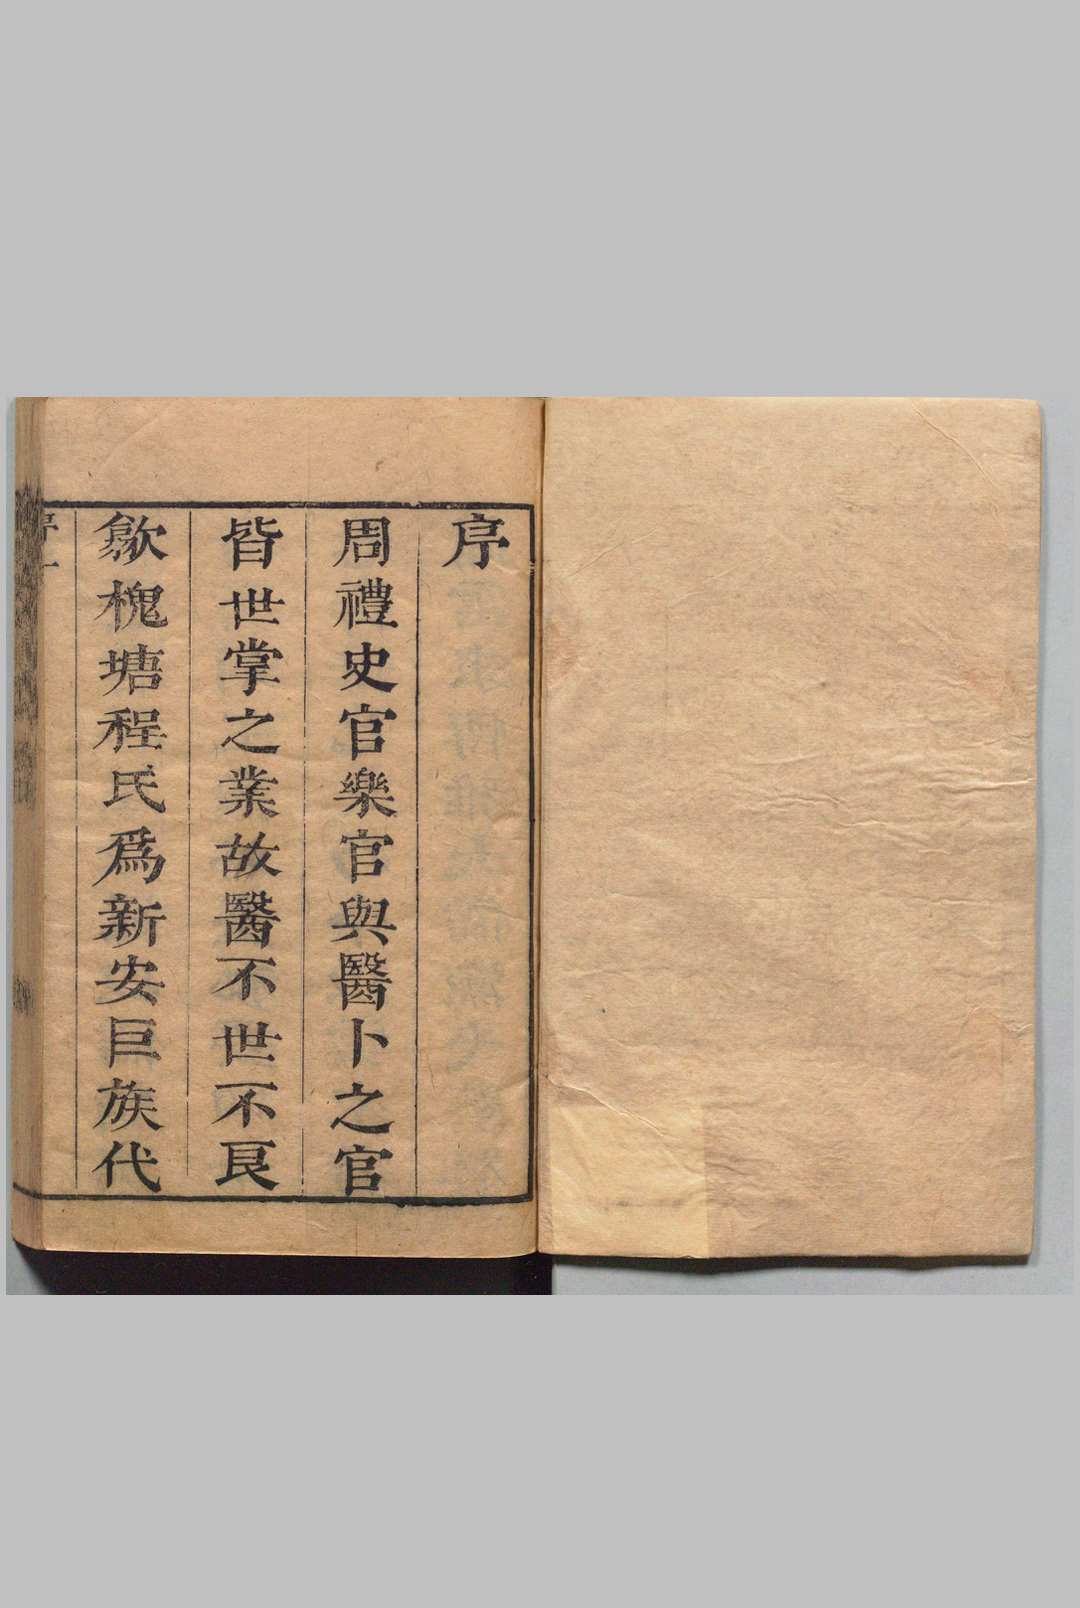 序
周禮史官樂官與醫卜之官
皆世掌之業故醫不世不良
歙槐塘程氏爲新安巨族代
序一